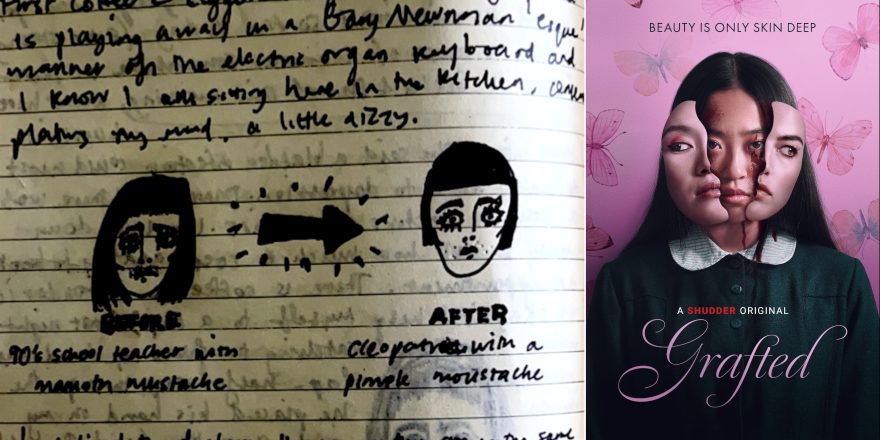 is playing away in a Gary Newman 'esque'
manner off the electric organ keyboard and
I know I am sitting here in the kitchen,
my mind, a little dizzy.
BEFORE
90's school teacher with
mamoth mustache
AFTER
Cleopatra with a
pimple moustache
BEAUTY IS ONLY SKIN DEEP
A SHUDDER ORIGINAL
Grafted